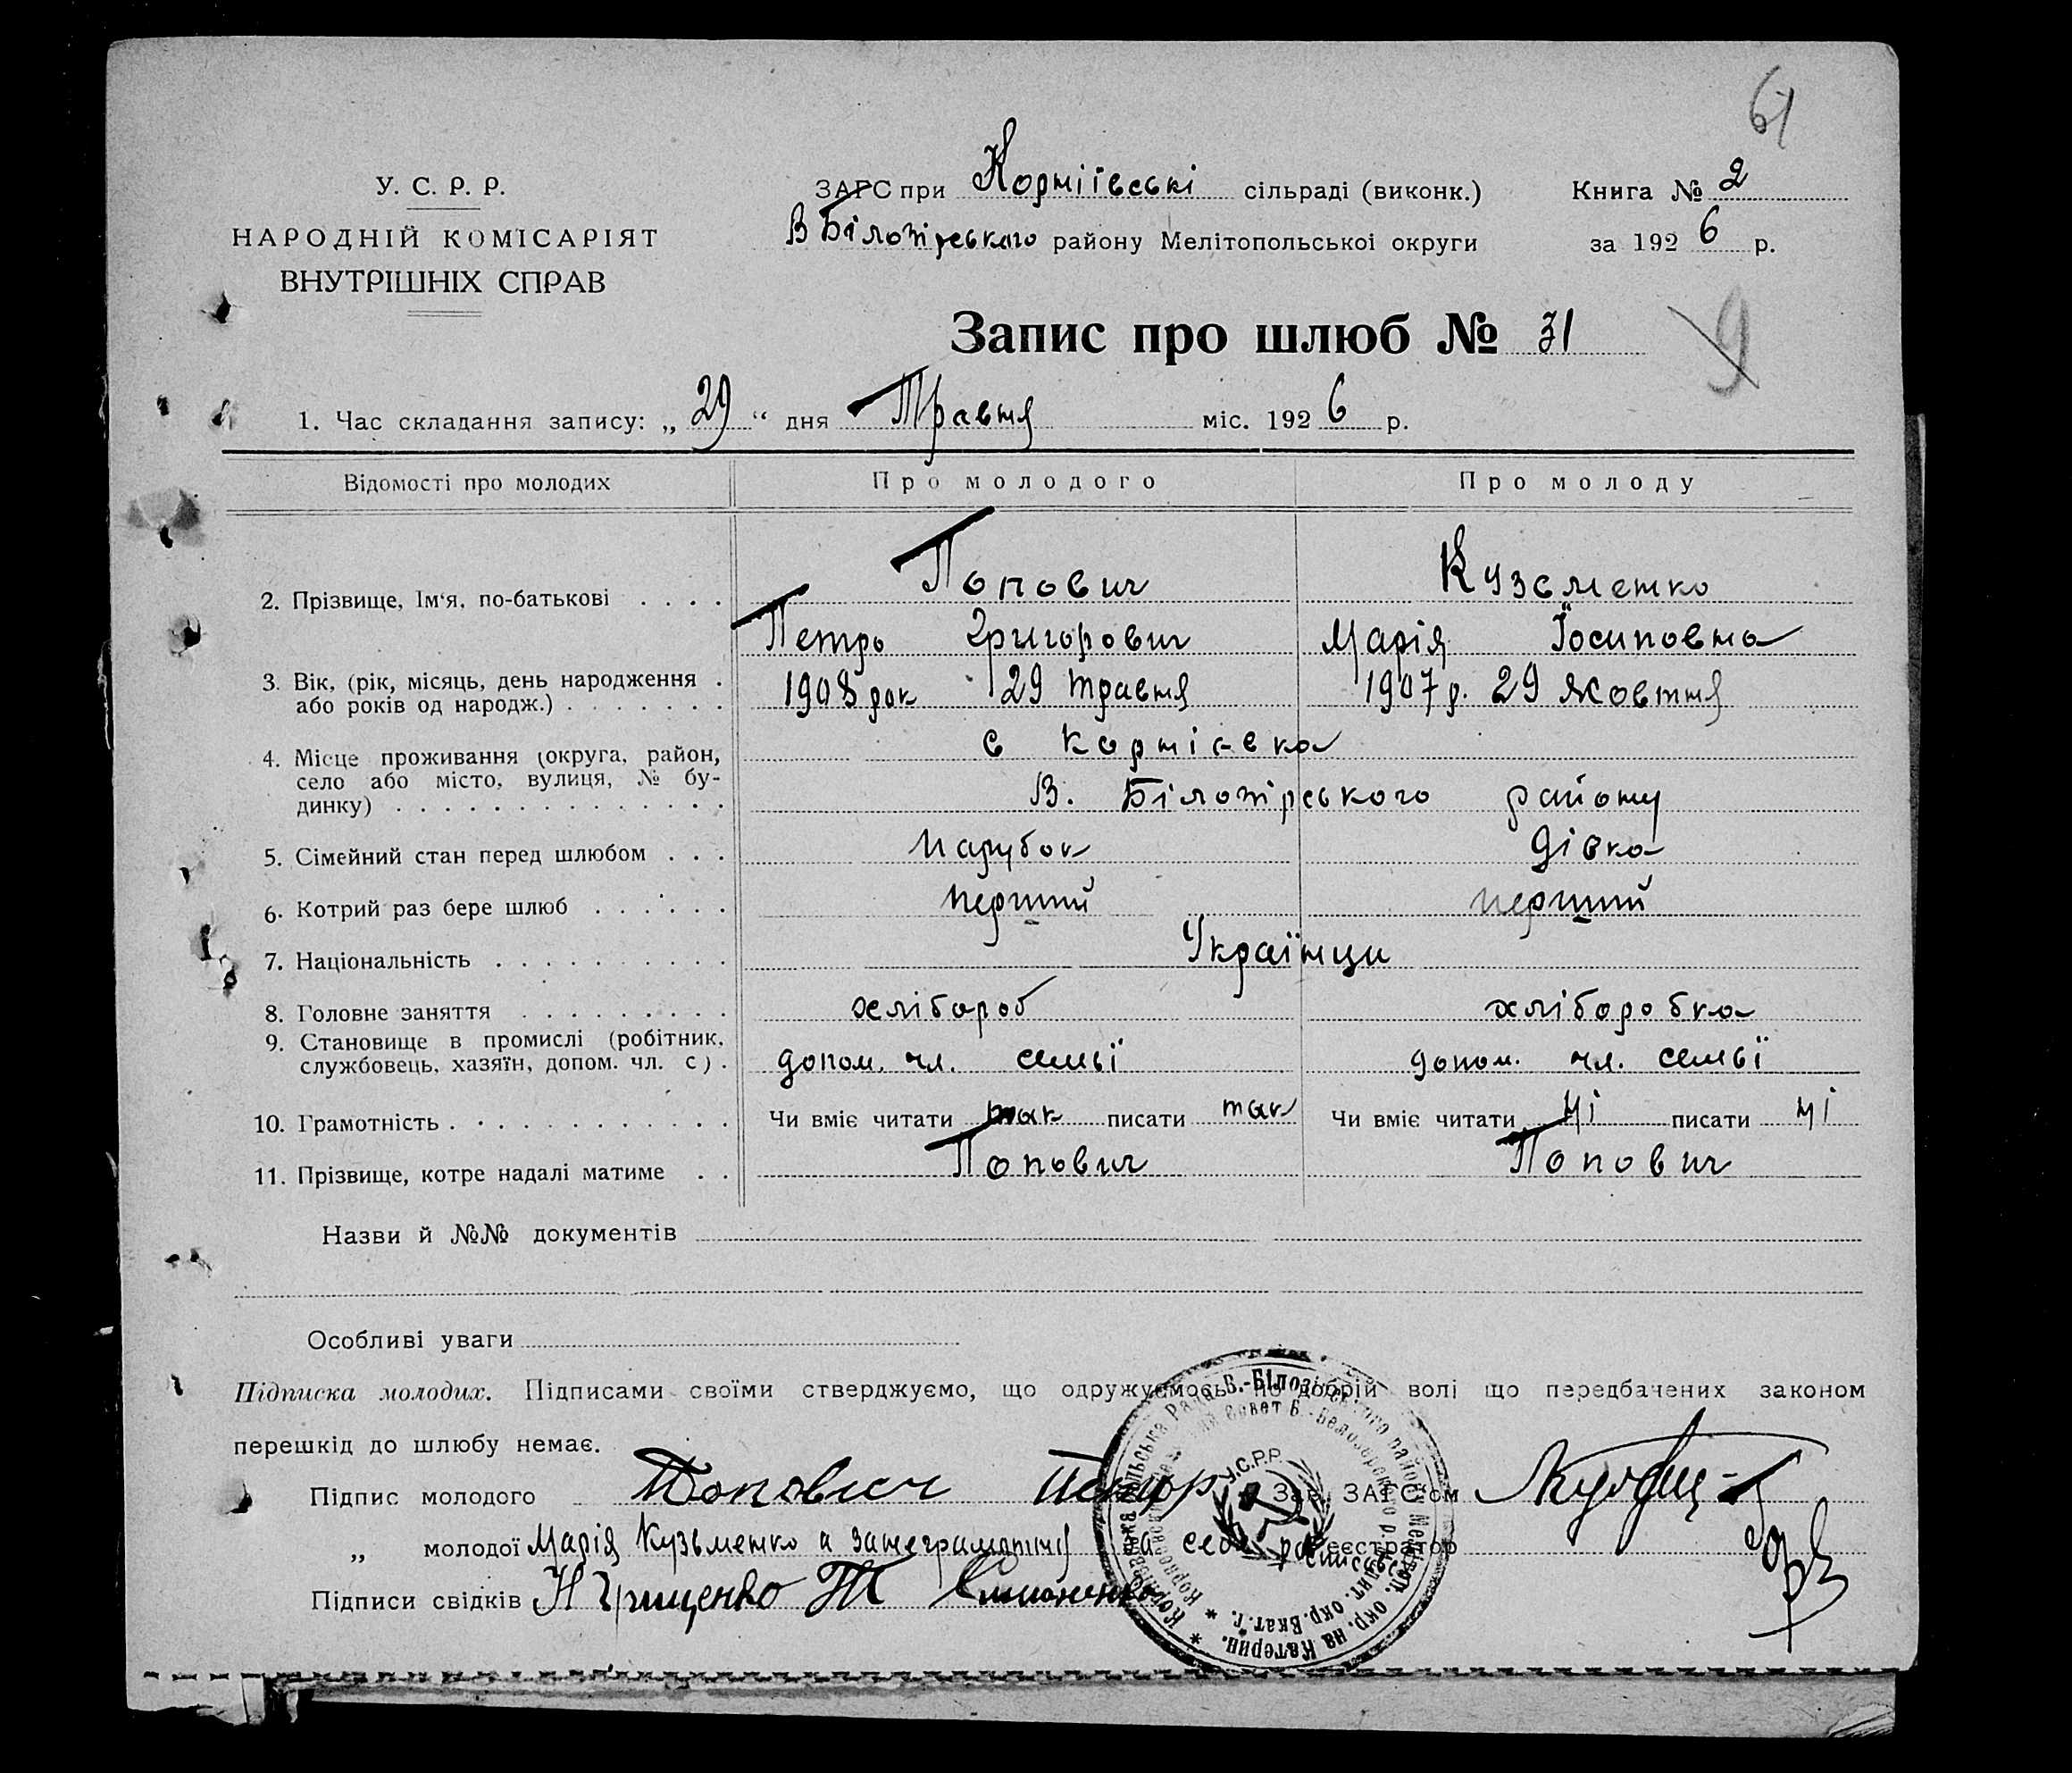 61
У. С. Р. Р.
НАРОДНІЙ КОМІСАРІЯТ
ВНУТРІШНІХ СПРАВ
ЗАГС при Корніївські сільраді (виконк.) Книга № 2
В Білозірського району Мелітопольської округи за 1926 р.
Запис про шлюб № 31
9
1. Час складання запису: „29“ дня Травня міс. 1926 р.
Відомості про молодих Про молодого Про молоду
2. Прізвище, Ім'я, по-батькові Попович Кузьменко
Петро Григорович Марія Йосиповна
3. Вік, (рік, місяць, день народження 1908 рок 29 травня 1907 р. 29 жовтня
або років од народж.)
4. Місце проживання (округа, район, с Корніевка
село або місто, вулиця, № бу-
динку) В. Білозірського району
5. Сімейний стан перед шлюбом парубок дівка
6. Котрий раз бере шлюб перший перший
7. Національність Українци
8. Головне заняття хлібороб хліборобка
9. Становище в промислі (робітник,
службовець, хазяїн, допом. чл. с). допом. чл. семьї допом. чл. семьї
10. Грамотність Чи вміє читати так писати так Чи вміє читати ні писати ні
11. Прізвище, котре надалі матиме Попович Попович
Назви й №№ документів
Особливі уваги
Підписка молодих. Підписами своїми стверджуємо, що одружуємось по добрій волі що передбачених законом
перешкід до шлюбу немає.
Підпис молодого Попович Петр Зав. ЗАГС'ом
„ молодої Марія Кузьменко а занеграмотну себе Реєстратор
Підписи свідків Н Грищенко
У.С.Р.Р.